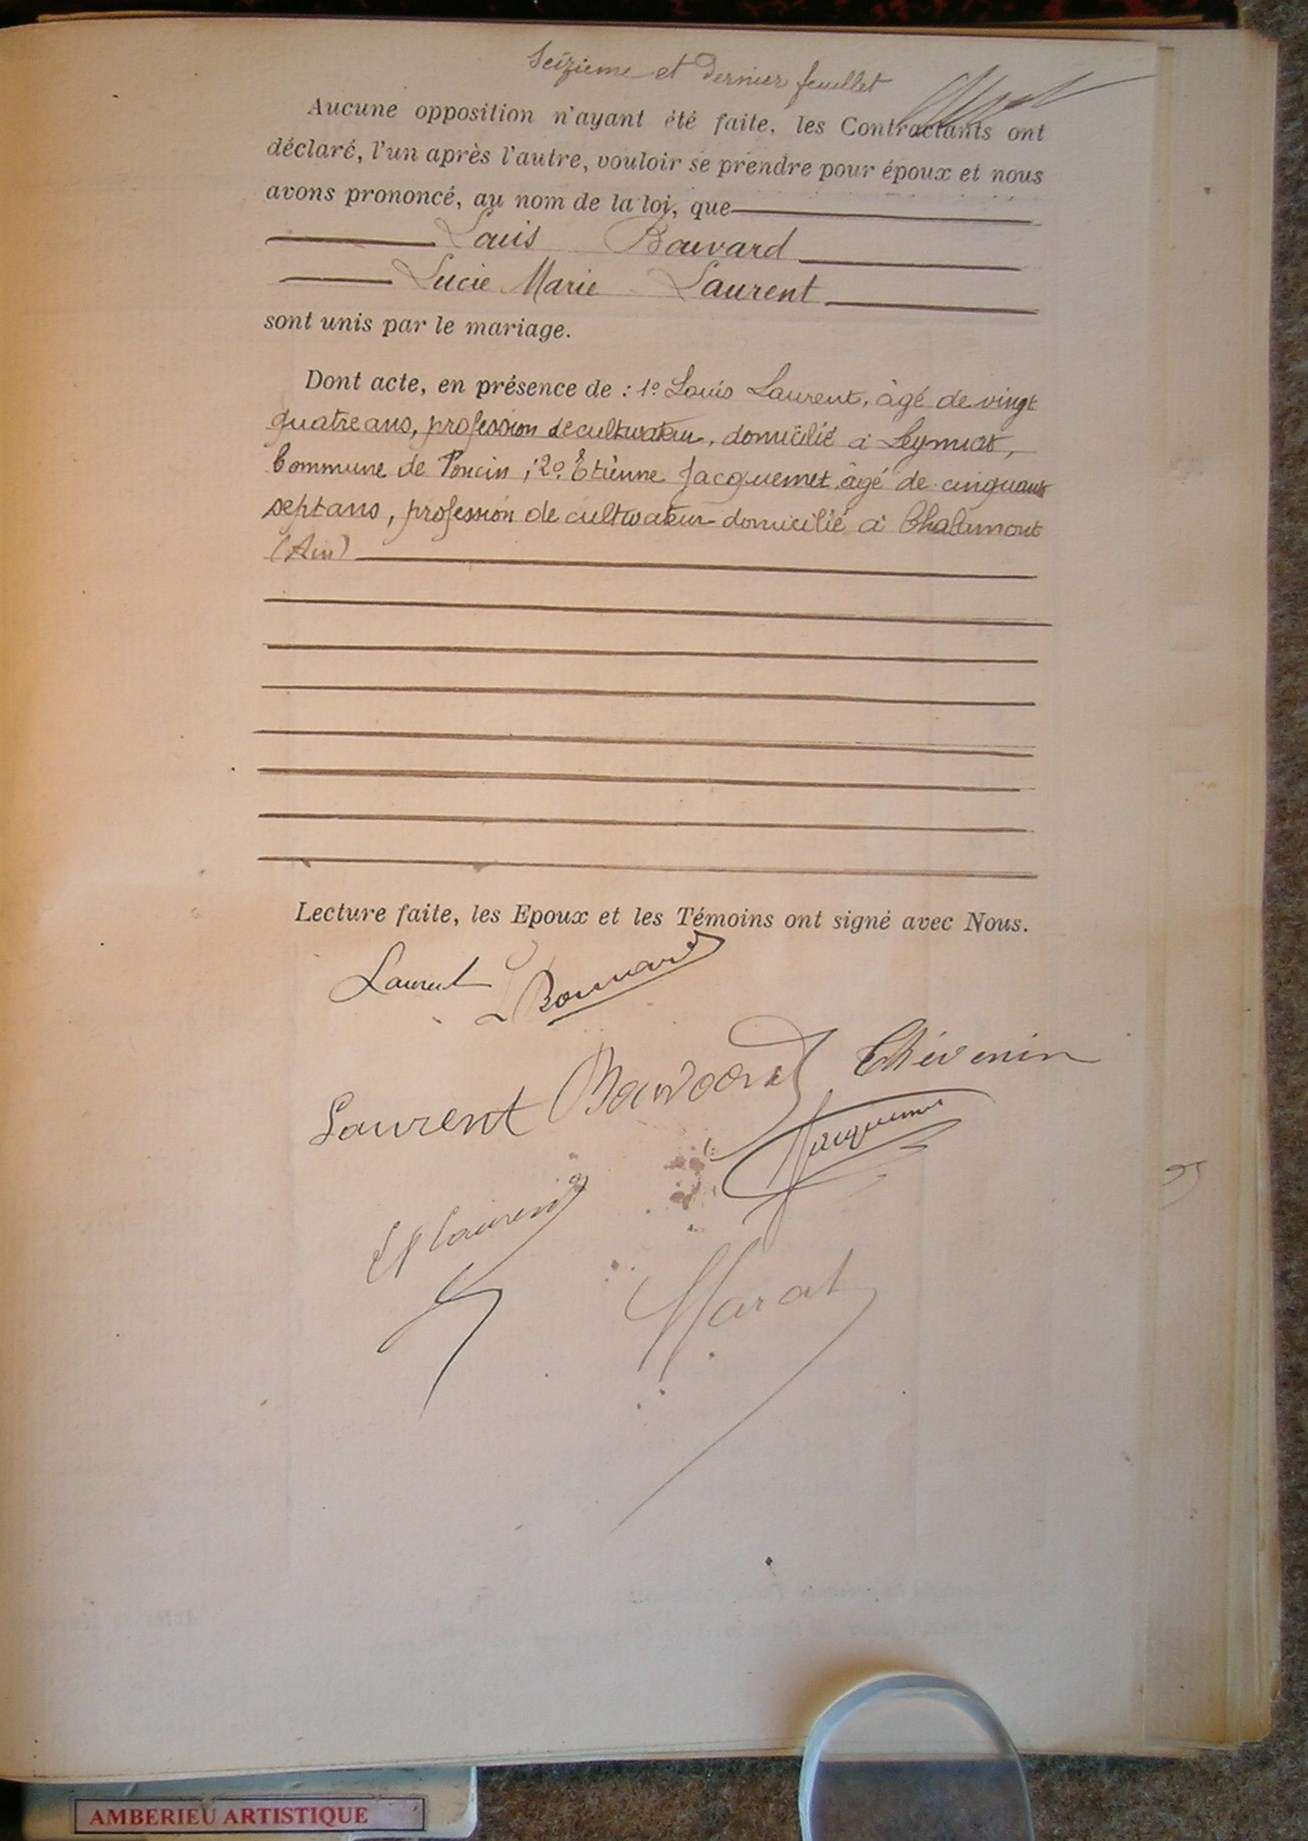 Seizieme et Dernier feuillet
Aucune opposition n'ayant été faite, les Contractants ont
déclaré, l'un après l'autre, vouloir se prendre pour époux et nous
avons prononcé, au nom de la loi, que
Louis Bouvard
Lucie Marie Laurent
sont unis par le mariage.
Dont acte, en présence de : 1º Louis Laurent, âgé de vingt
quatre ans, profession de cultivateur, domicilié à Leymiat,
Commune de Poncin ; 2º Etienne Jacquemet âgé de cinquante
sept ans, profession de cultivateur domicilié à Chalamont
(Ain)
Lecture faite, les Epoux et les Témoins ont signé avec Nous.
Laurent Bouvard
Laurent Bouvard Thévenin
Jacquemet
Laurent
Marat
AMBERIEU ARTISTIQUE